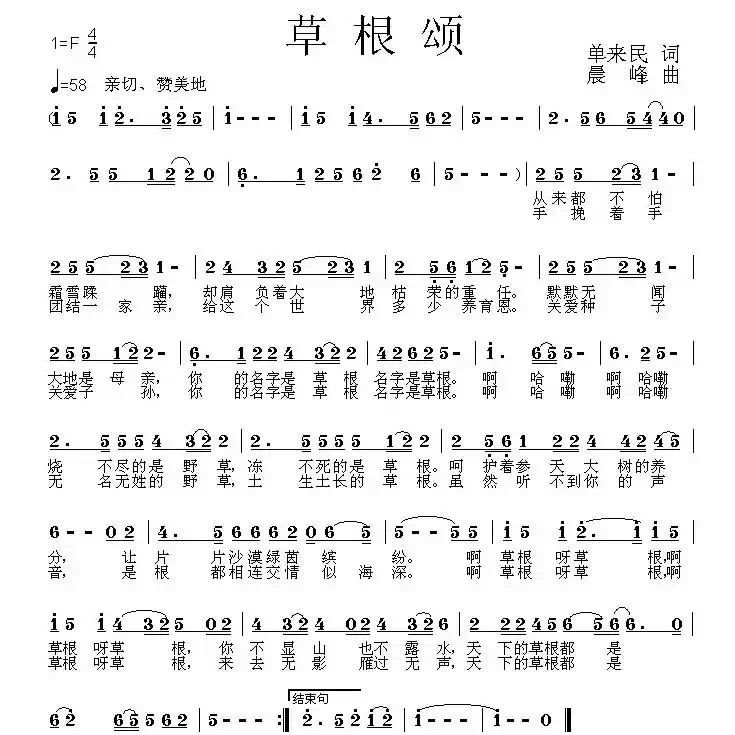 草根颂
1=F 4/4
单来民 词
晨峰 曲
♩=58 亲切、赞美地
(i5 i i2. 325 | i--- | i5 i i4. 562 | 5--- | 2. 56 5440 |
2. 55 1220 | 6. 12562 6 | 5---) | 255 231- |
从来都 不怕
手挽着手
255 231- | 24 32 5 231 | 2 56 6125 | 255 231- |
霜雪蹂 躏, 却肩 负着大 地枯荣的重任。默默无 闻
团结一 家亲, 给这个世 界多少养育恩。关爱种 子
255 122- | 6. 122 24 322 | 442 245- | i. 655- | 6. 245- |
大地是 母亲, 你 的名字是草根 名字是草根。啊 哈嘞 啊哈嘞
关爱子 孙, 你 的名字是草根 名字是草根。啊 哈嘞 啊哈嘞
2. 5554 322 | 2. 5555 122 | 2 561 224 4245 |
烧 不尽的是野草,冻 不死的是草根。呵 护着参天大树的养
无 名无姓的野草,土 生土长的草根。虽 然听不到你的声
6--02 | 4. 5666206 5 | 5--55 | i5 i 02. i i5 |
分, 让片 片沙漠绿茵缤 纷。 啊草根 呀草 根,啊
音, 是根 都相连交情似海 深。 啊草根 呀草 根,啊
i5 i4 32502 | 24324 024326 | 2 22456 56532 |
草根 呀草 根,你 不显山 也不露水,天 下的草根都 是
草根 呀草 根,来 去无影 雁过无声,天 下的草根都 是
结束句
62 655652 | 5--- :| 2. 52 i2 | i--- | i--0 ‖